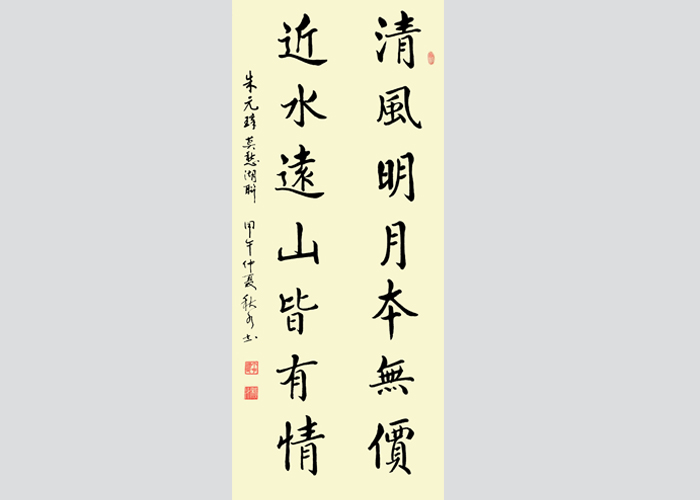 清風明月本無價
近水遠山皆有情
朱元璋莫愁湖聯 甲午仲夏秋水書